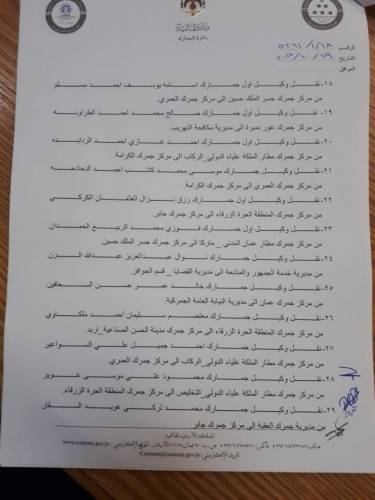 وزارة المالية
دائرة الجمارك
الرقم
التاريخ
الموافق
١٨- نقل وكيل اول جمارك اسامه يوسف احمد مسلم
من مركز جمرك جسر الملك حسين الى مركز جمرك العمري.
١٩- نقل وكيل اول جمارك صالح محمد احمد الطراونه
من مركز جمرك غور نميرة الى مديرية مكافحة التهريب.
٢٠- نقل وكيل اول جمارك احمد غازي احمد الردايده
من مركز جمرك مطار الملكة علياء الدولي_الركاب الى مركز جمرك الكرامة.
٢١- نقل وكيل جمارك موسى محمد كاتب احمد الدخادحه
من مركز جمرك العمري الى مركز جمرك الكرامة.
٢٢- نقل وكيل اول جمارك رزق نزال العثمان الكركي
من مركز جمرك المنطقة الحرة الزرقاء الى مركز جمرك جابر.
٢٣- نقل وكيل اول جمارك فوزي محمد الربيع الحمدان
من مركز جمرك مطار عمان المدني _ ماركا الى مركز جمرك جسر الملك حسين.
٢٤- نقل وكيل جمارك نوال عبدالعزيز عبدالله الزن
من مديرية خدمة الجمهور والمتابعة الى مديرية القضايا _ قسم الحوافز.
٢٥- نقل وكيل جمارك خالد عمر حسن السعافين
من مركز جمرك عمان الى مديرية النيابة العامة الجمركية.
٢٦- نقل وكيل جمارك معتصم سليمان احمد ملكاوي
من مركز جمرك المنطقة الحرة الزرقاء الى مركز جمرك مدينة الحسن الصناعية_اربد.
٢٧- نقل وكيل جمارك احمد جميل علي السواعير
من مركز جمرك مطار الملكة علياء الدولي_الركاب الى مركز جمرك العمري.
٢٨- نقل وكيل جمارك محمود علي موسى عوير
من مركز جمرك مطار الملكة علياء الدولي_التخليص الى مركز جمرك المنطقة الحرة الزرقاء.
٢٩- نقل وكيل جمارك محمد تركي عويد الصقار
من مديرية جمرك العقبة إلى مركز جمرك جابر
المملكة الأردنية الهاشمية
www.customs.gov.jo
Customs@customs.gov.jo